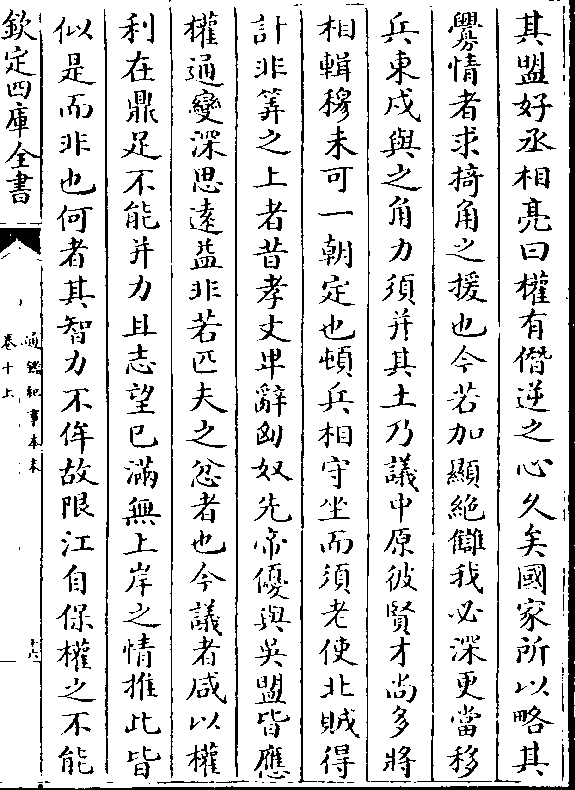 其盟好丞相亮曰權有僭逆之心久矣國家所以略其
釁情者求掎角之援也今若加顯絶讎我必深更當移
兵東戍與之角力須并其土乃議中原彼賢才尚多將
相輯穆未可一朝定也頓兵相守坐而須老使北賊得
計非筭之上者昔孝文卑辭匈奴先帝優與吳盟皆應
權通變深思遠益非若匹夫之忿者也今議者咸以權
利在鼎足不能并力且志望已滿無上岸之情推此皆
似是而非也何者其智力不侔故限江自保權之不能
欽定四庫全書
通鑑紀事本末
卷十上